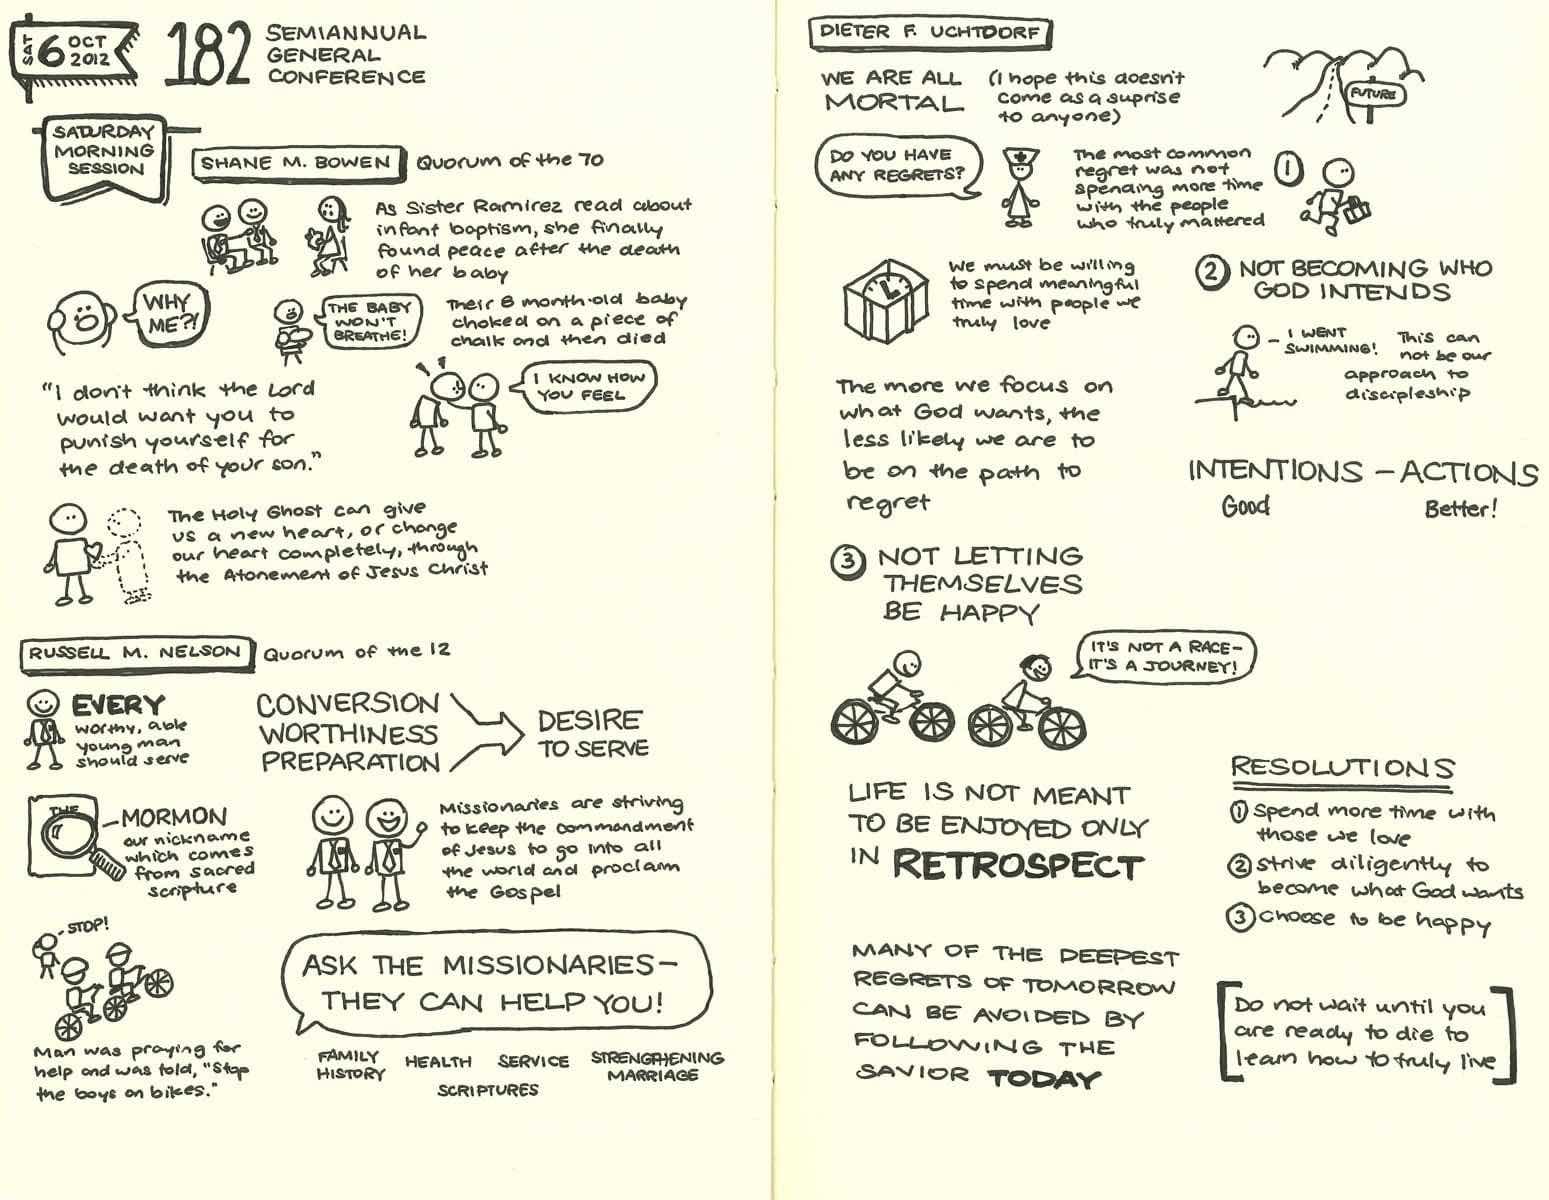 SAT 6 OCT 2012
182
SEMIANNUAL
GENERAL
CONFERENCE
SATURDAY
MORNING
SESSION
SHANE M. BOWEN
Quorum of the 70
As Sister Ramirez read about
infant baptism, she finally
found peace after the death
of her baby
WHY
ME?!
THE BABY
WON'T
BREATHE!
Their 8 month-old baby
choked on a piece of
chalk and then died
"I don't think the Lord
would want you to
punish yourself for
the death of your son."
I KNOW HOW
YOU FEEL
The Holy Ghost can give
us a new heart, or change
our heart completely, through
the Atonement of Jesus Christ
RUSSELL M. NELSON
Quorum of the 12
EVERY
worthy, able
young man
should serve
CONVERSION
WORTHINESS
PREPARATION
DESIRE
TO SERVE
THE
MORMON
our nickname
which comes
from sacred
scripture
Missionaries are striving
to keep the commandment
of Jesus to go into all
the world and proclaim
the Gospel
STOP!
Man was praying for
help and was told, "Stop
the boys on bikes."
ASK THE MISSIONARIES—
THEY CAN HELP YOU!
FAMILY
HISTORY
HEALTH
SERVICE
STRENGTHENING
MARRIAGE
SCRIPTURES
DIETER F. UCHTDORF
WE ARE ALL
MORTAL
(I hope this doesn't
come as a suprise
to anyone)
FUTURE
DO YOU HAVE
ANY REGRETS?
The most common
regret was not
spending more time
with the people
who truly mattered
1
We must be willing
to spend meaningful
time with people we
truly love
2 NOT BECOMING WHO
GOD INTENDS
I WENT
SWIMMING!
This can
not be our
approach to
discipleship
The more we focus on
what God wants, the
less likely we are to
be on the path to
regret
INTENTIONS - ACTIONS
Good Better!
3 NOT LETTING
THEMSELVES
BE HAPPY
IT'S NOT A RACE-
IT'S A JOURNEY!
LIFE IS NOT MEANT
TO BE ENJOYED ONLY
IN RETROSPECT
RESOLUTIONS
1 Spend more time with
those we love
2 Strive diligently to
become what God wants
3 Choose to be happy
MANY OF THE DEEPEST
REGRETS OF TOMORROW
CAN BE AVOIDED BY
FOLLOWING THE
SAVIOR TODAY
[Do not wait until you
are ready to die to
learn how to truly live]